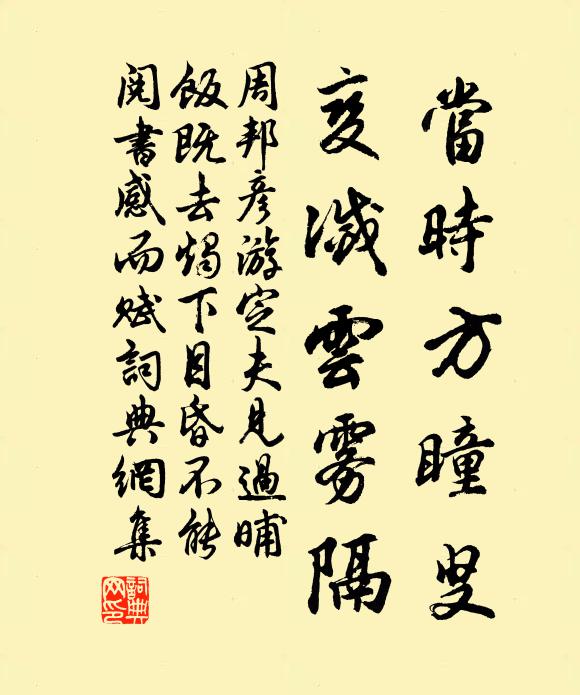 當時方瞳叟
变滅雲霧隔
周邦彥游定夫見過晡
飯既去燭下目昏不能
閱書感而賦詞典網集
詞典
网印